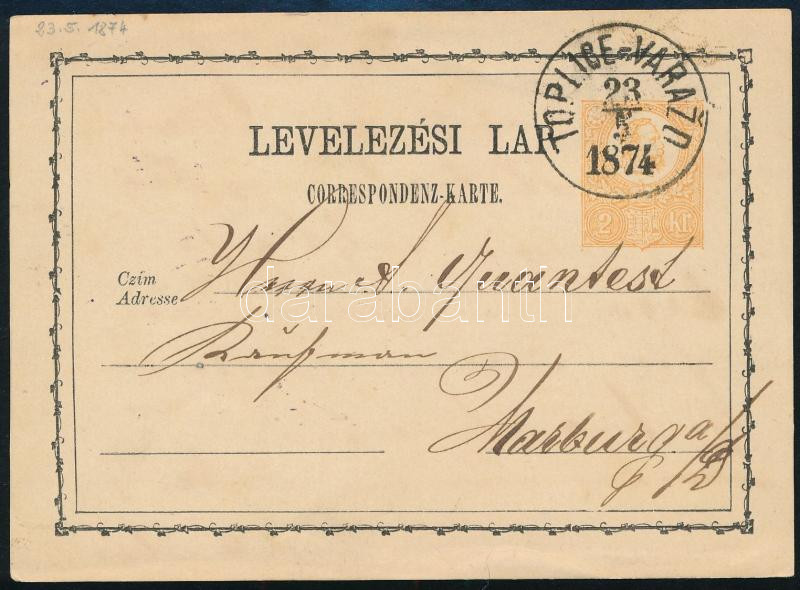 23.5.1874
TOPLICE-VARAŽD
23
5
1874
LEVELEZÉSI LAP
CORRESPONDENZ-KARTE.
2 Kr
Czím
Adresse
Herrn A. Quantest
Kaufman
Marburg a/D
darabanth